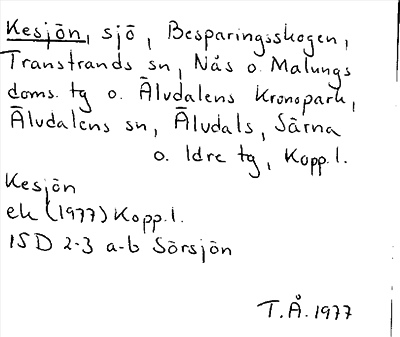 Kesjön, sjö, Besparingsskogen,
Transtrands sn, Nås o. Malungs
doms. tg o. Älvdalens Kronopark,
Älvdalens sn, Älvdals, Särna
o. Idre tg, Kopp. l.
Kesjön
ek (1977) Kopp. l.
15D 2-3 a-b Sörsjön
T.Å. 1977